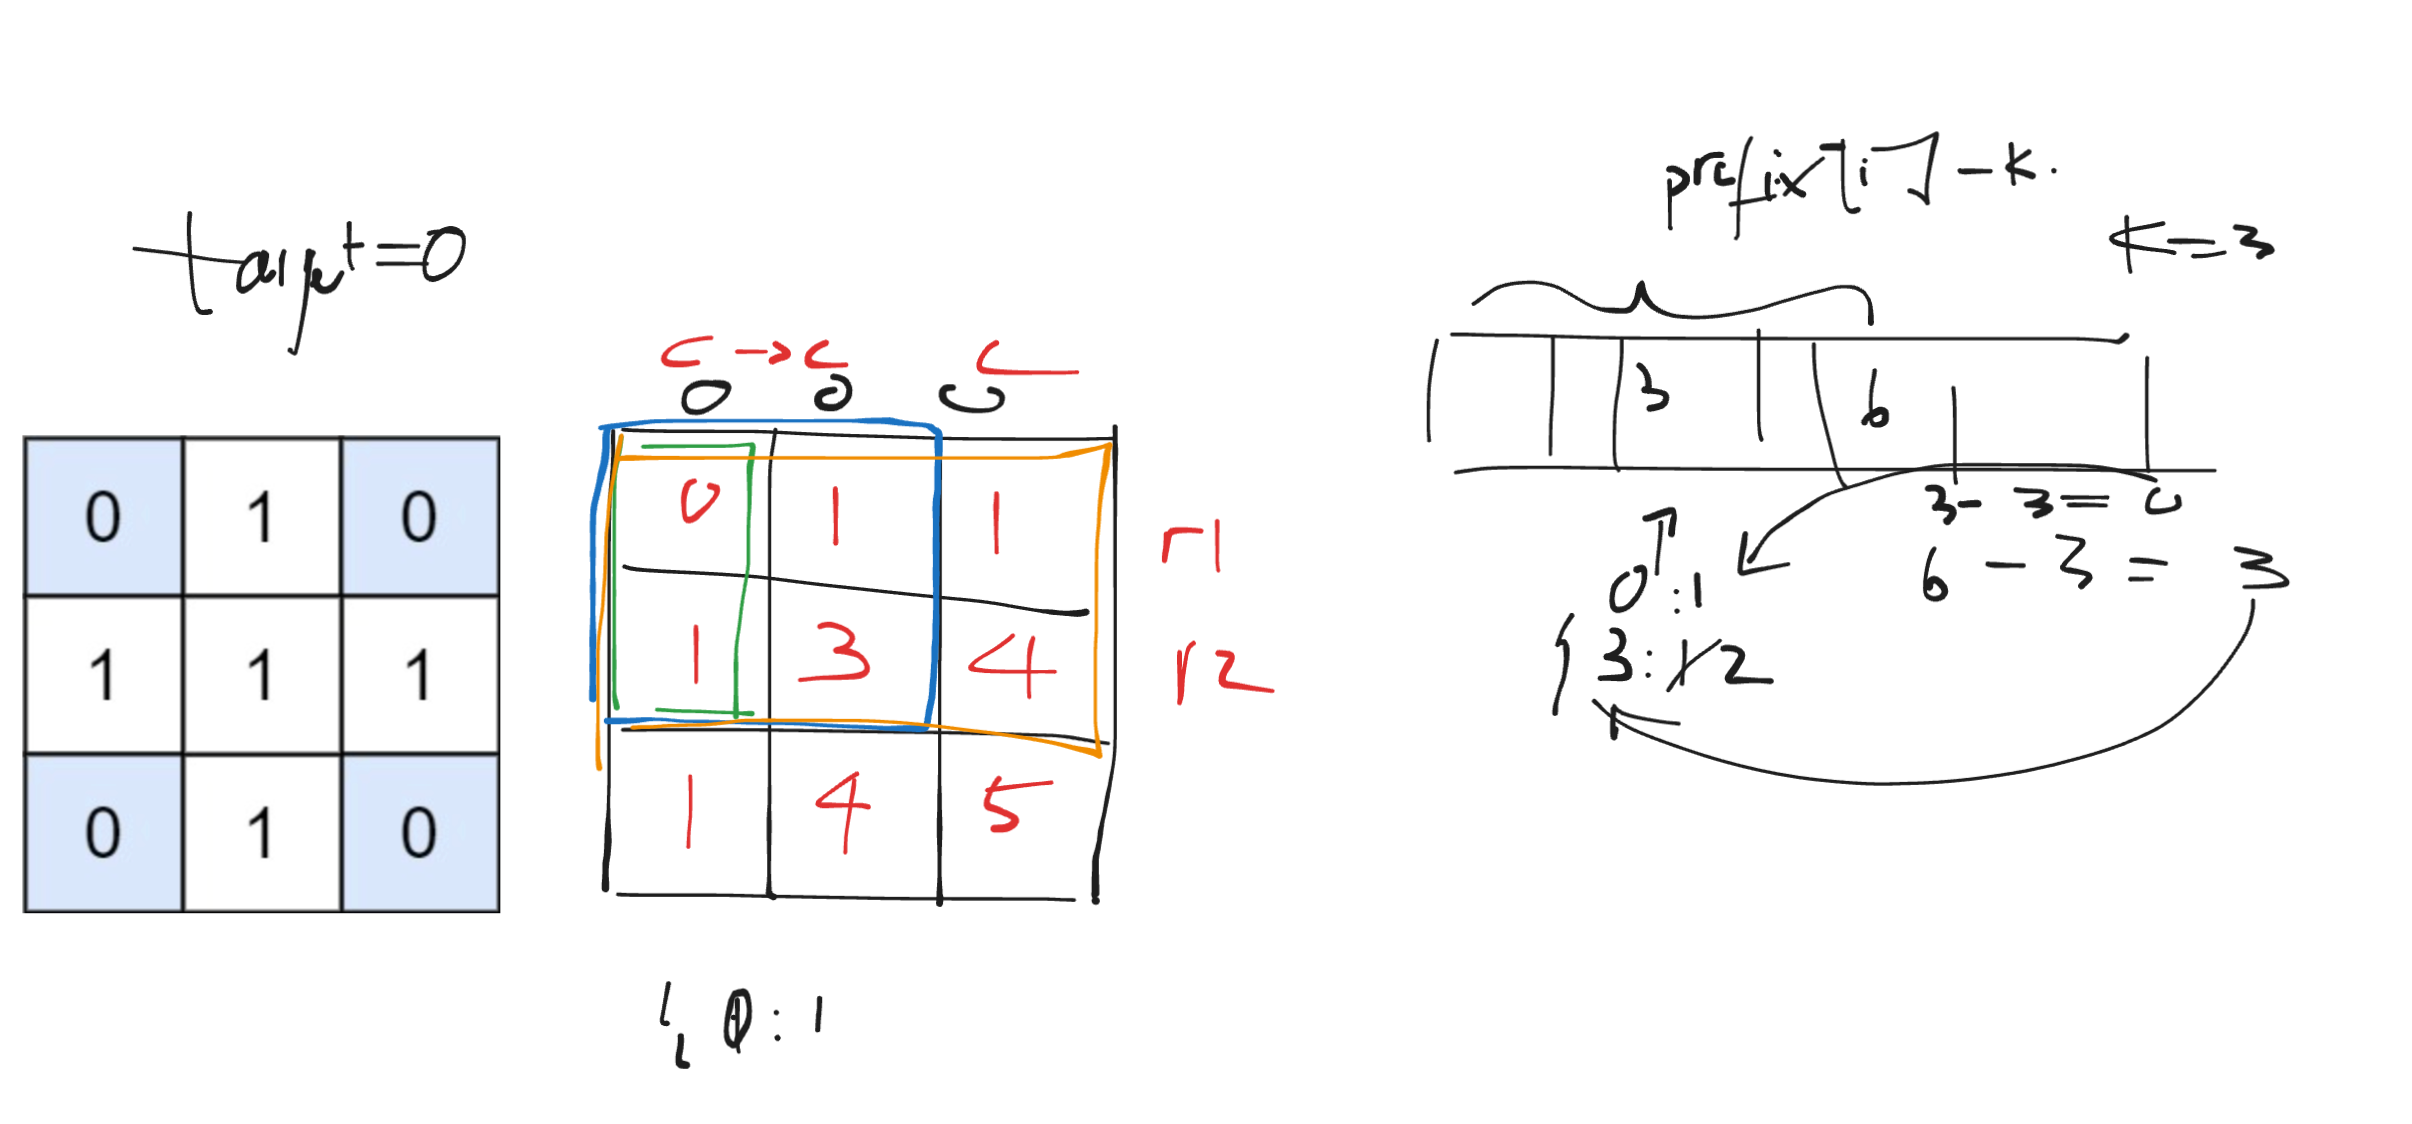 target=0
0 1 0
1 1 1
0 1 0
c → c c
0 0
0 1 1 r1
1 3 4 r2
1 4 5
{ 0 : 1
prefix[i] - k.
k=3
3 6
3 - 3 = 0
6 - 3 = 3
0 : 1
{ 3 : 1 2